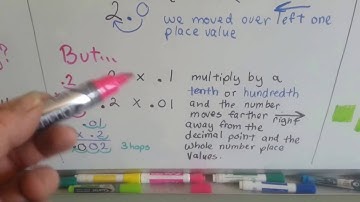 2.0
we moved over left one
place value
But...
.2
.2 x .1
.2 x .01
.01
x .2
.002
3 hops
multiply by a
tenth or hundredth
and the number
moves farther
right
away from the
decimal point and the
whole number place
values.